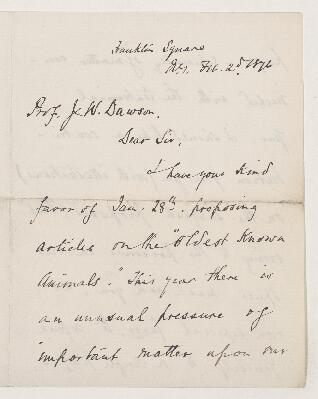 Franklin Square
N.Y. Feb. 2d 1876
Prof. J. W. Dawson,
Dear Sir,
I have your kind
favor of Jan. 28th. proposing
articles on the "Oldest Known
Animals." This year there is
an unusual pressure of
important matter upon our